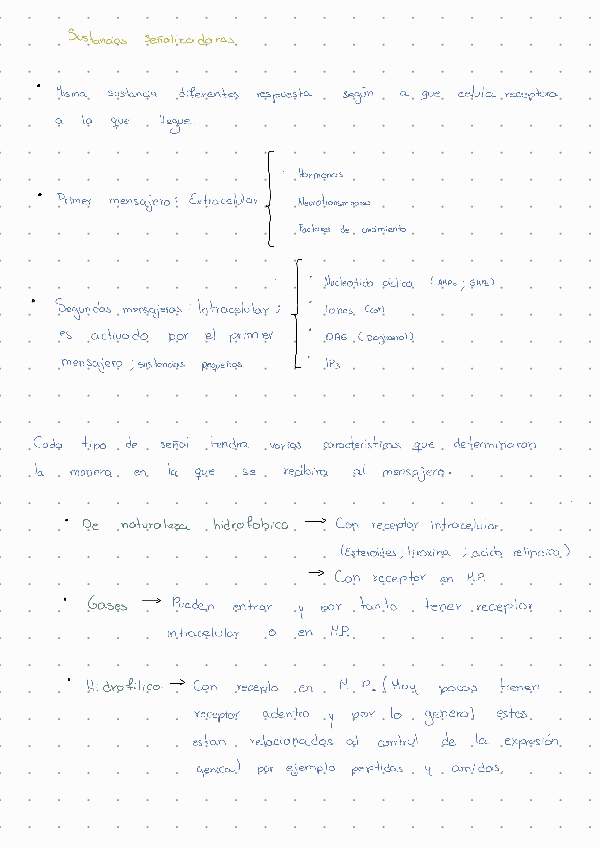 Sustancias señalizadoras.
• Misma sustancia diferentes respuesta según a que celula receptora
a la que llegue
• Primer mensajero: Extracelular
· Hormonas
· Neurotransmisores
· Factores de crecimiento
• Segundos mensajeros: Intracelular;
es activado por el primer
mensajero; sustancias pequeñas
· Nucleotido ciclico (AMPc; GMPc)
· Iones (Ca²⁺)
· DAG (Diaglicerol)
· IP3
Cada tipo de señal tendra varias caracteristicas que determinaran
la manera en la que se recibira al mensajero.
• De naturaleza hidrofobica → Con receptor intracelular
(Esteroides, tiroxina; acido retinoico)
→ Con receptor en M.P.
• Gases → Pueden entrar y por tanto tener receptor
intracelular o en M.P.
• Hidrofilico → Con recepto en M.P. (Muy pocos tienen
receptor adentro y por lo general estos
estan relacionados al control de la expresión
genica) por ejemplo peptidos y amidos.